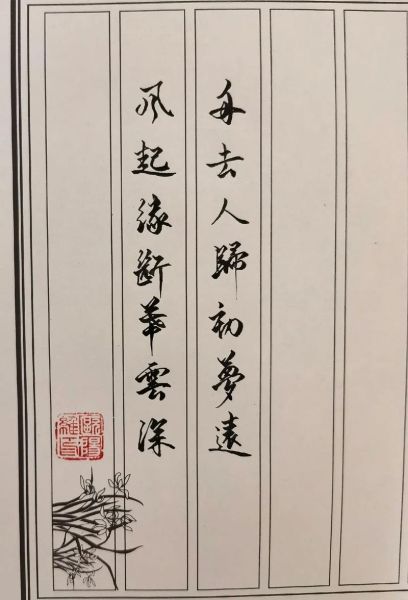 舟去人歸初夢遠
風起緣斷華雲深